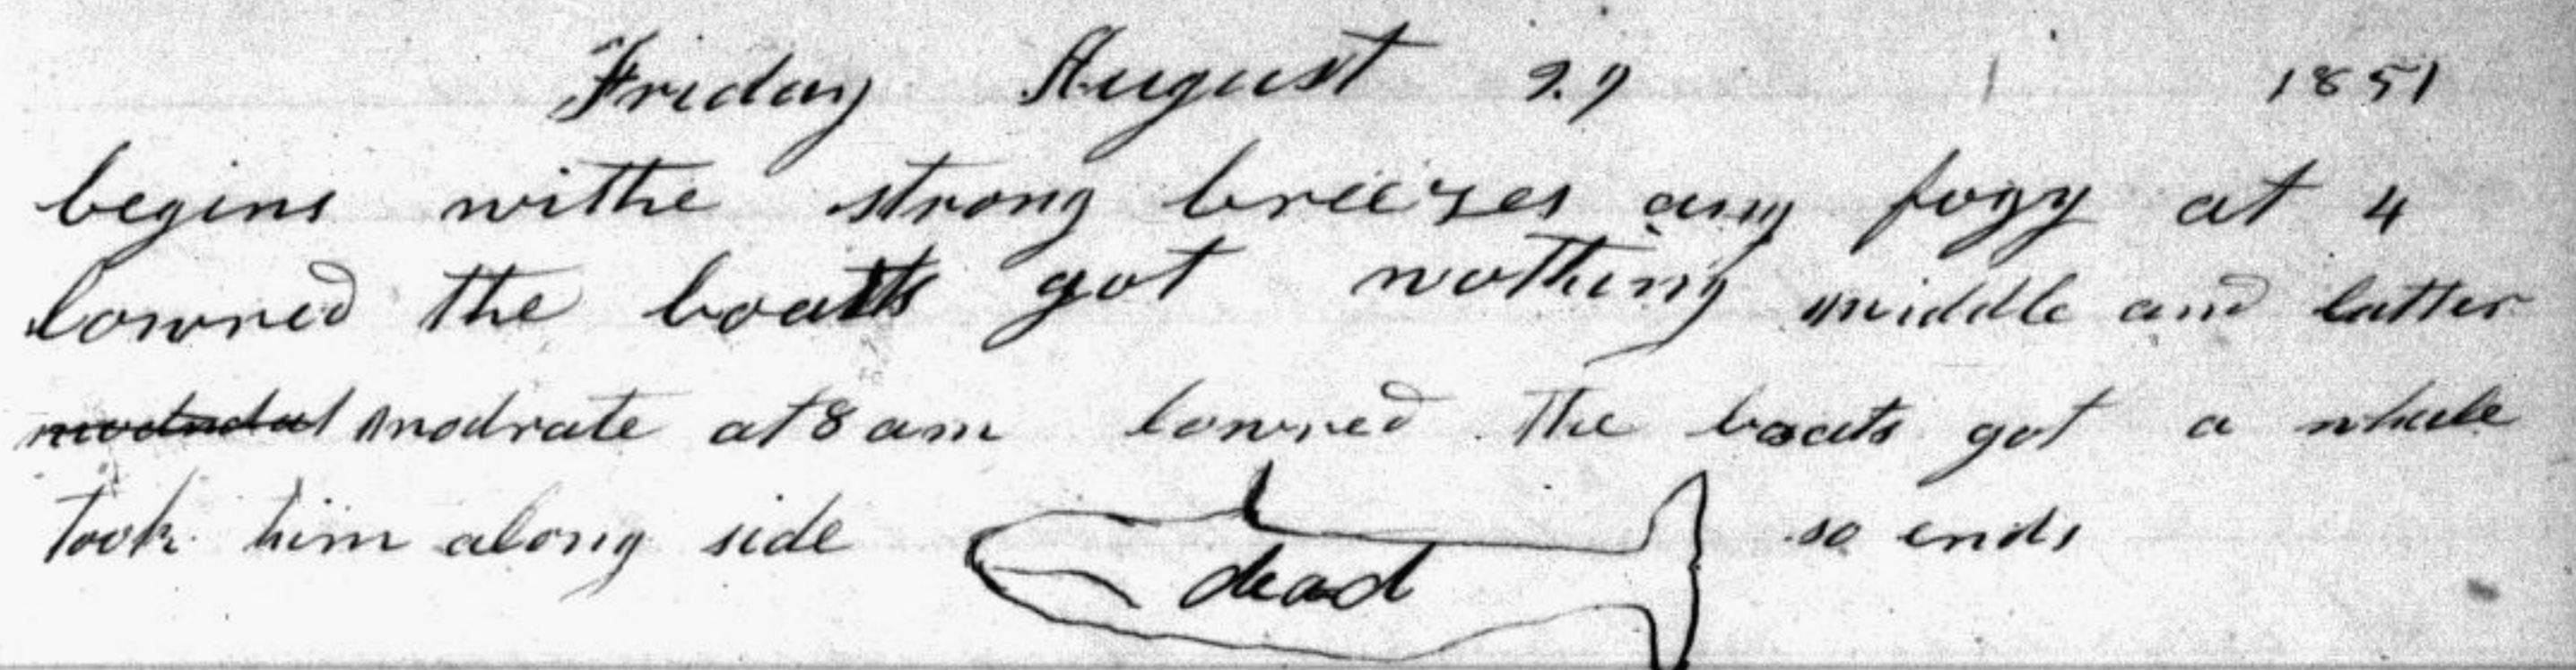 Friday August 29 1851
begins withe strong breezes any fogy at 4
lowred the boatts got nothing middle and latter
modrate at 8 am lowred the boats got a whale
took him along side dead so ends